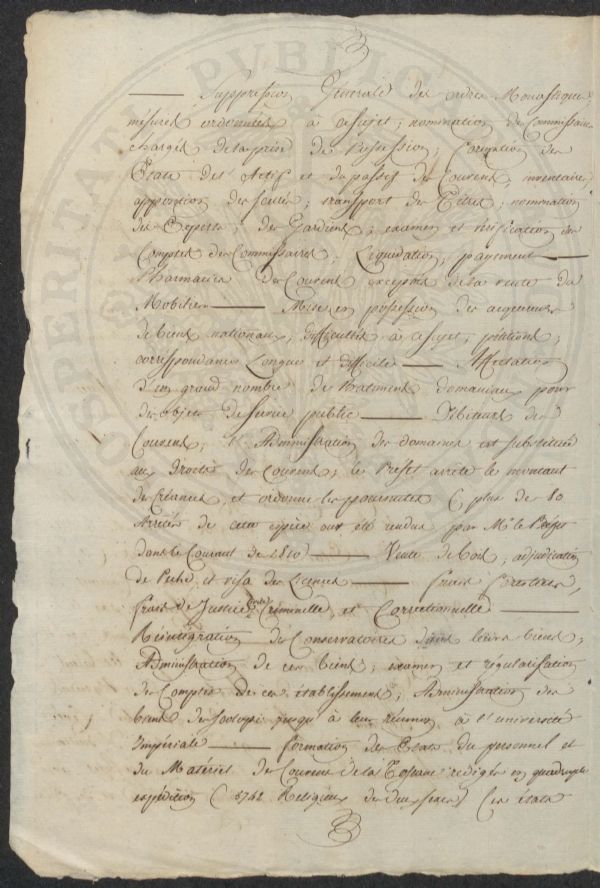 Suppression Générale des ordres Monastiques;
mesures ordonnées à ce sujet; nomination de Commissaires
chargés de la prise de Possession; formation des
Etats de l'Actif et du passif des Couvens, inventaires,
apposition des scellés; transport des Titres; nomination
des Experts; des Gardiens; examen et vérification des
Comptes des Commissaires; Liquidation; payement —
Pharmacies des Couvens exceptées de la vente du
Mobilier — Mise en possession des acquéreurs
de biens nationaux; difficultés à ce sujet; pétitions;
correspondance Longue et difficile — Affectation
d'un grand nombre de Batimens domaniaux pour
des objets de service public — Débiteurs des
Couvens; l'Administration des domaines est substituée
aux Droits des Couvens; le Préfet arrête le montant
des Créances, et ordonne les poursuites (plus de 80
Arrêtés de cette espèce ont été rendus par Mr. le Préfet
dans le Courant de 1810 — Vente de bois; adjudication
de Pêche, et visa des Licences — frais forestiers,
frais de Justice Criminelle, et Correctionnelle —
Réintégration des Conservatoires dans leurs biens;
Administration de ces biens; examen et régularisation
des Comptes de ces établissemens; Administration des
biens des scolopi jusqu'à leur réunion à l'université
Impériale — formation des Etats du personnel et
du Matériel des Couvens de la Toscane rédigés en quadruple
expédition (8742 Religieux des deux sexes) Ces états
OSPERITATI PUBLICAE